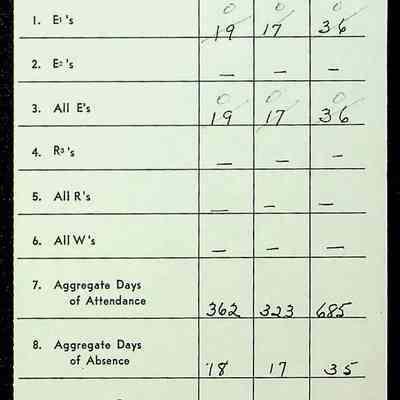 0 0 0
1. E1's 19 17 36
2. E2's — — —
0 0 0
3. All E's 19 17 36
4. R3's — — —
5. All R's — — —
6. All W's — — —
7. Aggregate Days
of Attendance 362 323 685
8. Aggregate Days
of Absence 18 17 35